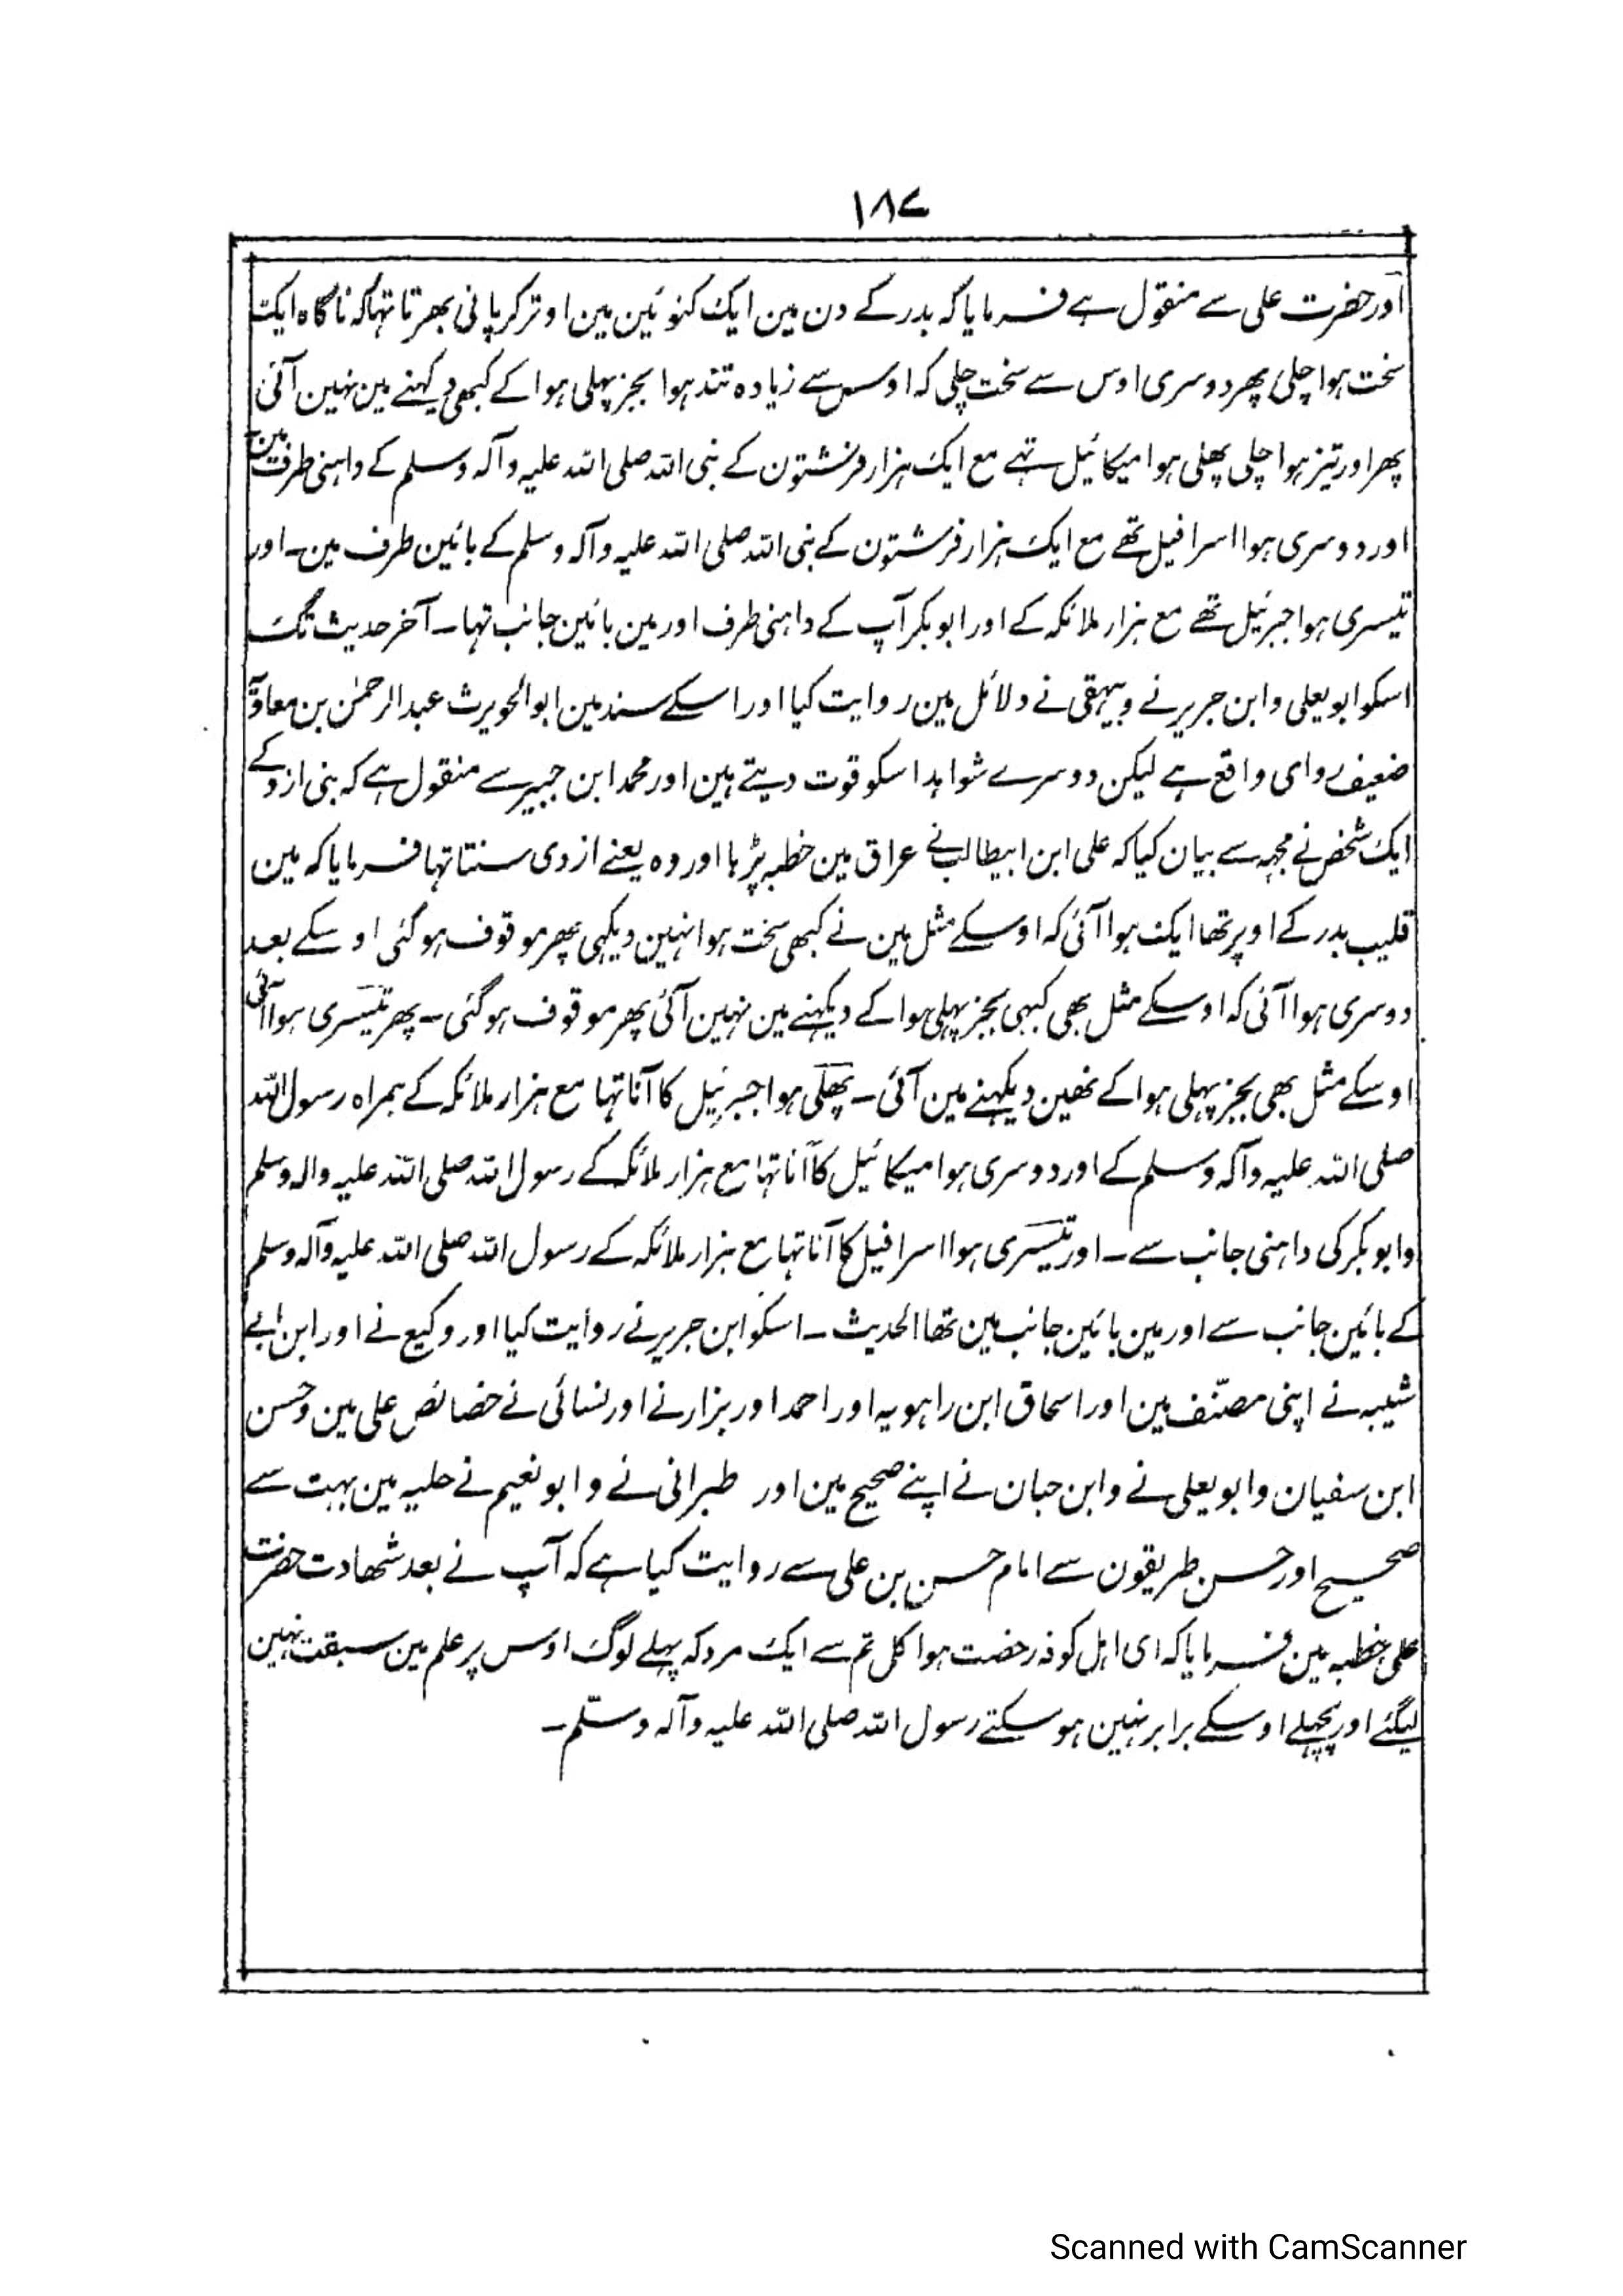 ۱۸۷
اور حضرت علی سے منقول ہے فرمایا کہ بدر کے دن مین ایک کنوئین مین اوتر کر پانی بھرتا تہا کہ ناگاہ ایک
سخت ہوا چلی پھر دوسری اوس سے سخت چلی کہ اوس سے زیادہ تند ہوا بجز پہلی ہوا کے کبھی دیکہنے مین نہین آئی
پھر اور تیز ہوا چلی پھلی ہوا میکائیل تہے مع ایک ہزار فرشتون کے نبی اللہ صلی اللہ علیہ وآلہ وسلم کے داہنی طرف مین
اور دوسری ہوا اسرافیل تھے مع ایک ہزار فرشتون کے نبی اللہ صلی اللہ علیہ وآلہ وسلم کے بائین طرف مین۔ اور
تیسری ہوا جبرئیل تھے مع ہزار ملائکہ کے اور ابوبکر آپ کے داہنی طرف اور مین بائین جانب تہا۔ آخر حدیث تک
اسکو ابو یعلی وابن جریر نے وبیہقی نے دلائل مین روایت کیا اور اسکے سند مین ابوالحویرث عبدالرحمٰن بن معاویہ
ضعیف روای واقع ہے لیکن دوسرے شواہد اسکو قوت دیتے ہین اور محمد ابن جبیر سے منقول ہے کہ بنی ازد کے
ایک شخص نے مجہہ سے بیان کیا کہ علی ابن ابیطالب نے عراق مین خطبہ پڑہا اور وہ یعنے ازدی سنتا تہا فرمایا کہ مین
قلیب بدر کے اوپر تھا ایک ہوا آئی کہ اوسکے مثل مین نے کبھی سخت ہوا نہین دیکہی پھر موقوف ہوگئی اوسکے بعد
دوسری ہوا آئی کہ اوسکے مثل بھی کبہی بجز پہلی ہوا کے دیکہنے مین نہین آئی پھر موقوف ہوگئی۔ پھر تیسری ہوا آئی
اوسکے مثل بھی بجز پہلی ہوا کے نھین دیکہنے مین آئی۔ پھلی ہوا جبرئیل کا آنا تہا مع ہزار ملائکہ کے ہمراہ رسول اللہ
صلی اللہ علیہ وآلہ وسلم کے اور دوسری ہوا میکائیل کا آنا تہا مع ہزار ملائکہ کے رسول اللہ صلی اللہ علیہ والہ وسلم
وابوبکر کی داہنی جانب سے۔ اور تیسری ہوا اسرافیل کا آنا تہا مع ہزار ملائکہ کے رسول اللہ صلی اللہ علیہ وآلہ وسلم
کے بائین جانب سے اور مین بائین جانب مین تھا الحدیث۔ اسکو ابن جریر نے روایت کیا اور وکیع نے اور ابن ابے
شیبہ نے اپنی مصنّف مین اور اسحاق ابن راہویہ اور احمد اور بزار نے اور نسائی نے خصائص علی مین وحسن
ابن سفیان وابو یعلی نے وابن حبان نے اپنے صحیح مین اور طبرانی نے و ابونعیم نے حلیہ مین بہت سے
صحیح اور حسن طریقون سے امام حسن بن علی سے روایت کیا ہے کہ آپ نے بعد شھادت حضرت
علی خطبہ مین فرمایا کہ ای اہل کوفہ رخصت ہوا کل تم سے ایک مرد کہ پہلے لوگ اوس پر علم مین سبقت نہین
لیگئے اور پچہلے اوسکے برابر نہین ہوسکتے رسول اللہ صلی اللہ علیہ وآلہ وسلّم۔
Scanned with CamScanner